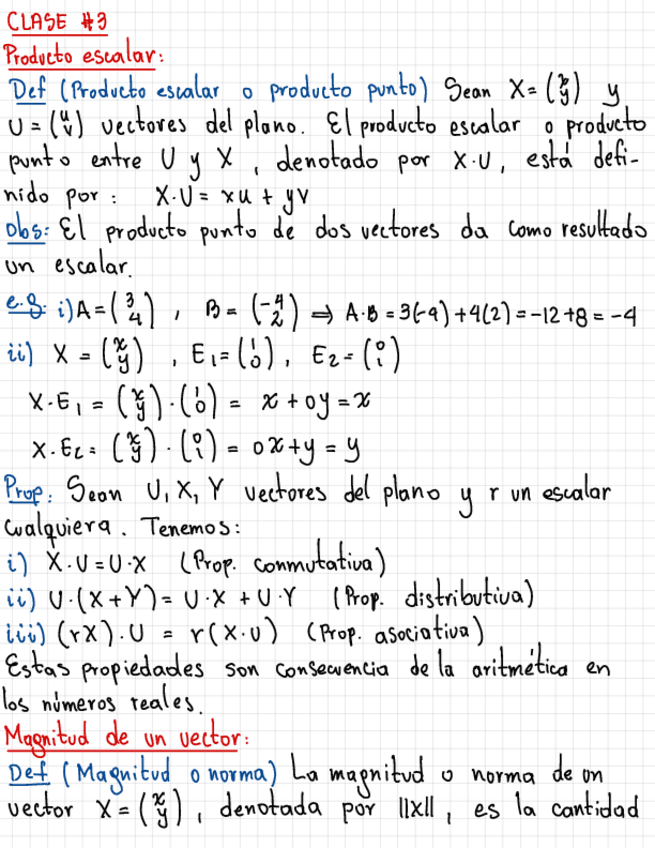 CLASE #3
Producto escalar:
Def (Producto escalar o producto punto) Sean X = (x y) y
U = (u v) vectores del plano. El producto escalar o producto
punto entre U y X, denotado por X·U, está defi-
nido por: X·U = xu + yv
obs: El producto punto de dos vectores da como resultado
un escalar.
e.g. i) A = (3 4), B = (-4 2) ⇒ A·B = 3(-4) + 4(2) = -12 + 8 = -4
ii) X = (x y), E₁ = (1 0), E₂ = (0 1)
X·E₁ = (x y)·(1 0) = x + 0y = x
X·E₂ = (x y)·(0 1) = 0x + y = y
Prop: Sean U, X, Y vectores del plano y r un escalar
cualquiera. Tenemos:
i) X·U = U·X (Prop. conmutativa)
ii) U·(X+Y) = U·X + U·Y (Prop. distributiva)
iii) (rX)·U = r(X·U) (Prop. asociativa)
Estas propiedades son consecuencia de la aritmética en
los números reales.
Magnitud de un vector:
Def (Magnitud o norma) La magnitud o norma de un
vector X = (x y), denotada por ||X||, es la cantidad